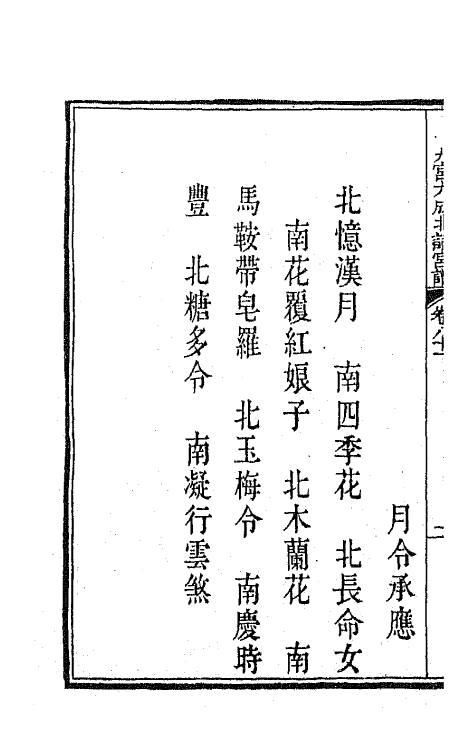 九宮大成北詞宮譜 卷八十一 二
月令承應
北憶漢月　南四季花　北長命女
南花覆紅娘子　北木蘭花　南
馬鞍帶皂羅　北玉梅令　南慶時
豐　北糖多令　南凝行雲煞